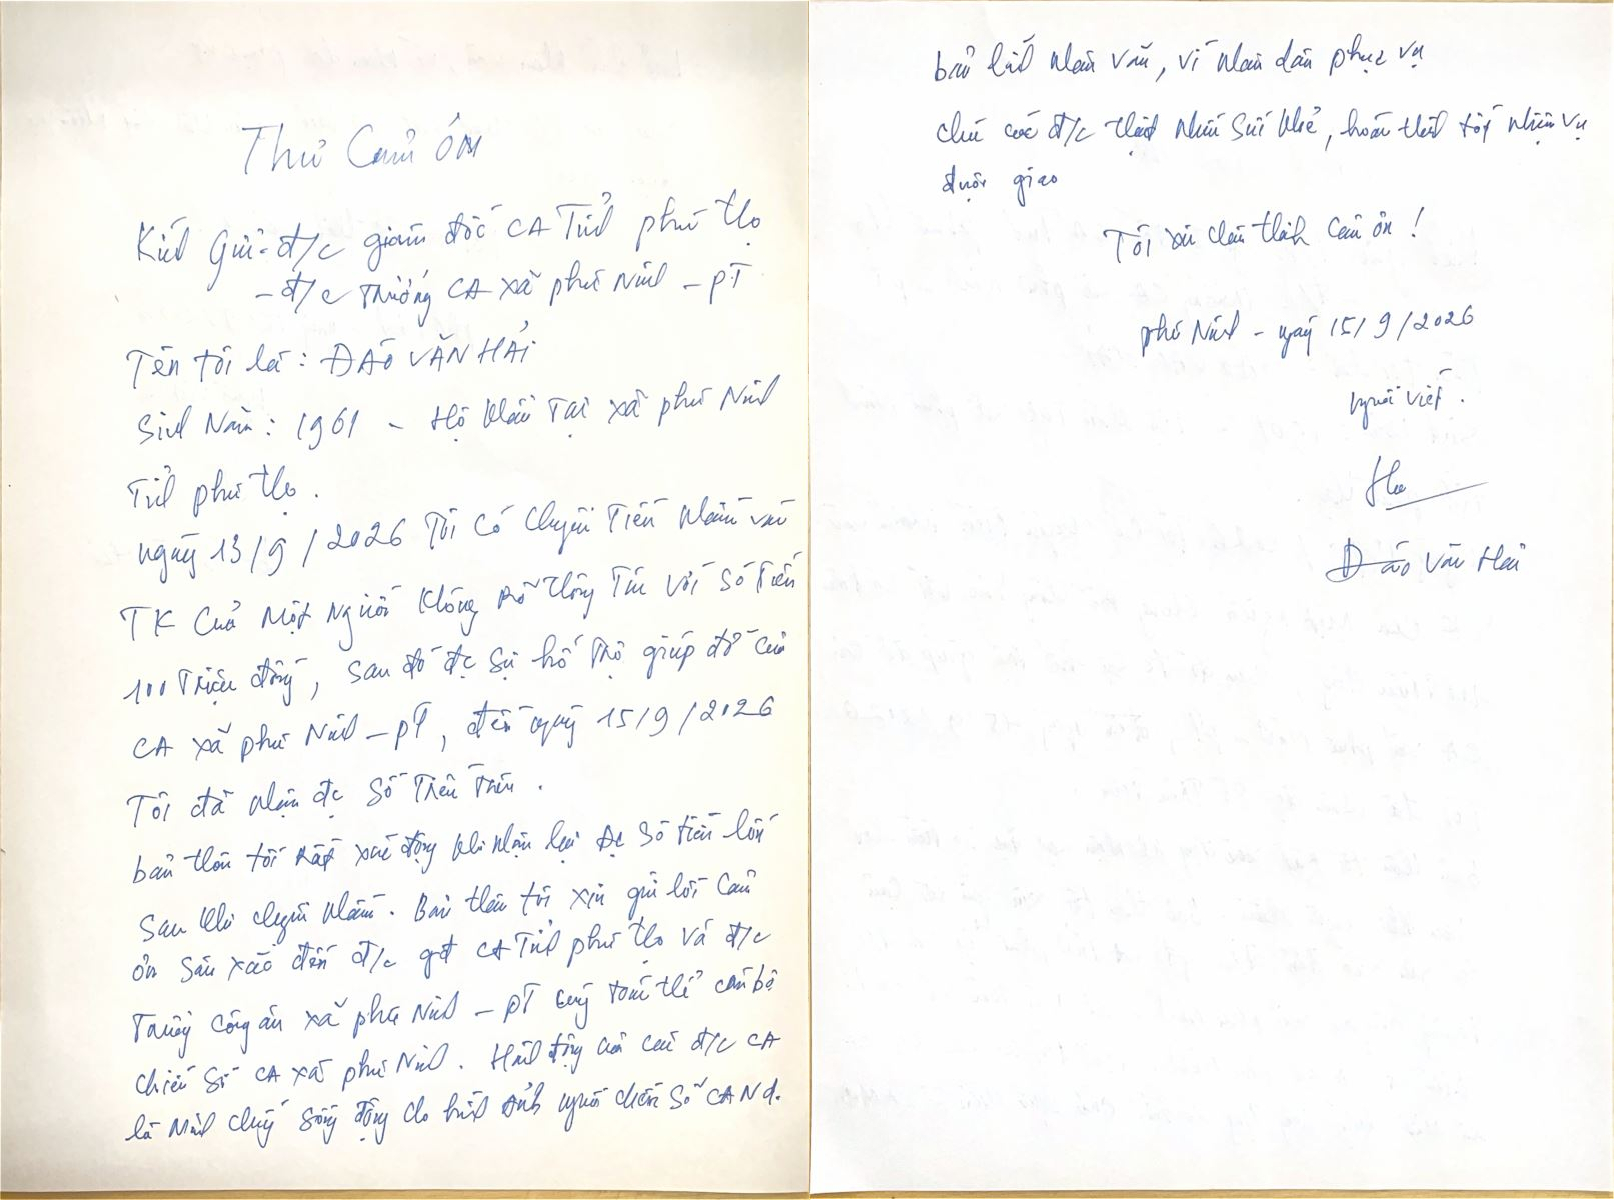 Thư Cảm ơn
Kính Gửi: đ/c giám đốc CA Tỉnh phú thọ
- đ/c Trưởng CA xã phú Ninh - PT
Tên tôi là: ĐÀO VĂN HẢI
Sinh Năm: 1961 - Hộ khẩu Tại xã phú Ninh
Tỉnh phú thọ.
ngày 13/9/2026 Tôi có chuyển Tiền nhầm vào
TK Của Một Người không rõ thông Tin với số Tiền
100 Triệu đồng, sau đó đc sự hỗ trợ giúp đỡ của
CA xã phú Ninh - PT, đến ngày 15/9/2026
Tôi đã nhận đc số Tiền trên.
bản thân tôi rất xúc động khi nhận lại đc số tiền lớn
sau khi chuyển nhầm. Bản thân tôi xin gửi lời cảm
ơn sâu xắc đến đ/c gđ CA Tỉnh phú thọ và đ/c
Trưởng công an xã phú Ninh - PT cùng toàn thể cán bộ
chiến sĩ CA xã phú Ninh. Hành động của các đ/c CA
là Minh chứng sống động cho hình ảnh người chiến sĩ CAND.
bản lĩnh nhân văn, vì nhân dân phục vụ
chúc các đ/c thật nhiều sức khỏe, hoàn thành tốt nhiệm vụ
được giao
Tôi xin chân thành cảm ơn!
phú Ninh - ngày 15/9/2026
người viết.
Đào Văn Hải